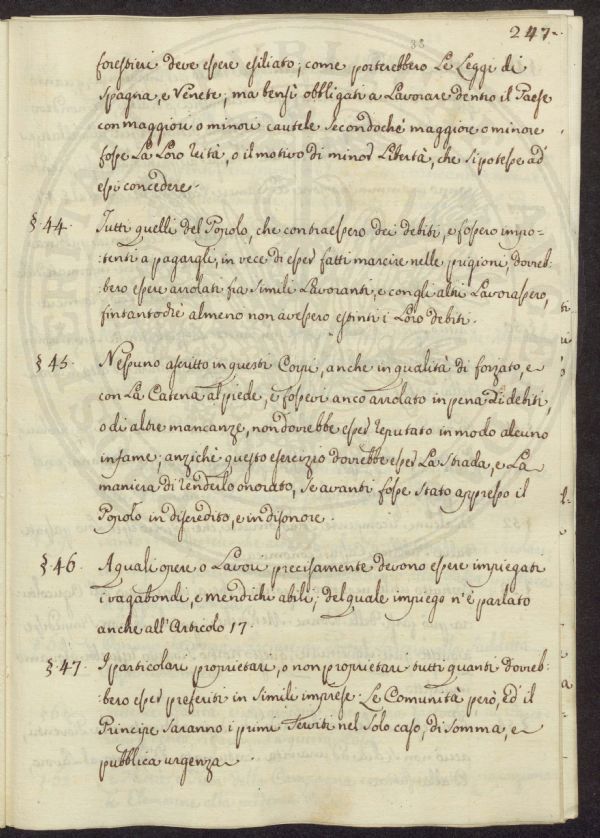 247.
38
forestieri deve essere esiliato; come porterebbero Le Leggi di
Spagna, e Venete; ma bensì obbligati a Lavorare dentro il Paese
con maggiori o minori cautele Secondochè maggiore o minore
fosse La Loro reità, o il motivo di minor Libertà, che Si potesse ad
essi concedere.
§. 44. Tutti quelli del Popolo, che contraessero dei debiti, e fossero impo-
-tenti a pagargli, in vece di esser fatti marcire nelle prigioni, dovreb-
-bero essere arrolati fra Simili Lavoranti, e con gli altri Lavorassero,
fintantochè almeno non avessero estinti i Loro debiti.
§. 45. Nessuno ascritto in questi Corpi, anche in qualità di forzato, e
con La Catena al piede, e fossevi anco arrolato in pena di debiti,
o di altre mancanze, non dovrebbe esser reputato in modo alcuno
infame; anzichè questo esercizio dovrebbe esser La Strada, e La
maniera di renderlo onorato, Se avanti fosse Stato appresso il
Popolo in discredito, e in disonore.
§. 46. A quali opere o Lavori precisamente devono essere impiegati
i vagabondi, e mendichi abili; del quale impiego n'è parlato
anche all'Articolo 17.
§. 47. I particolari proprietari, o non proprietari tutti quanti dovreb-
-bero esser preferiti in Simili imprese. Le Comunità però, ed il
Principe Saranno i primi Serviti nel Solo caso, di Somma, e
pubblica urgenza.